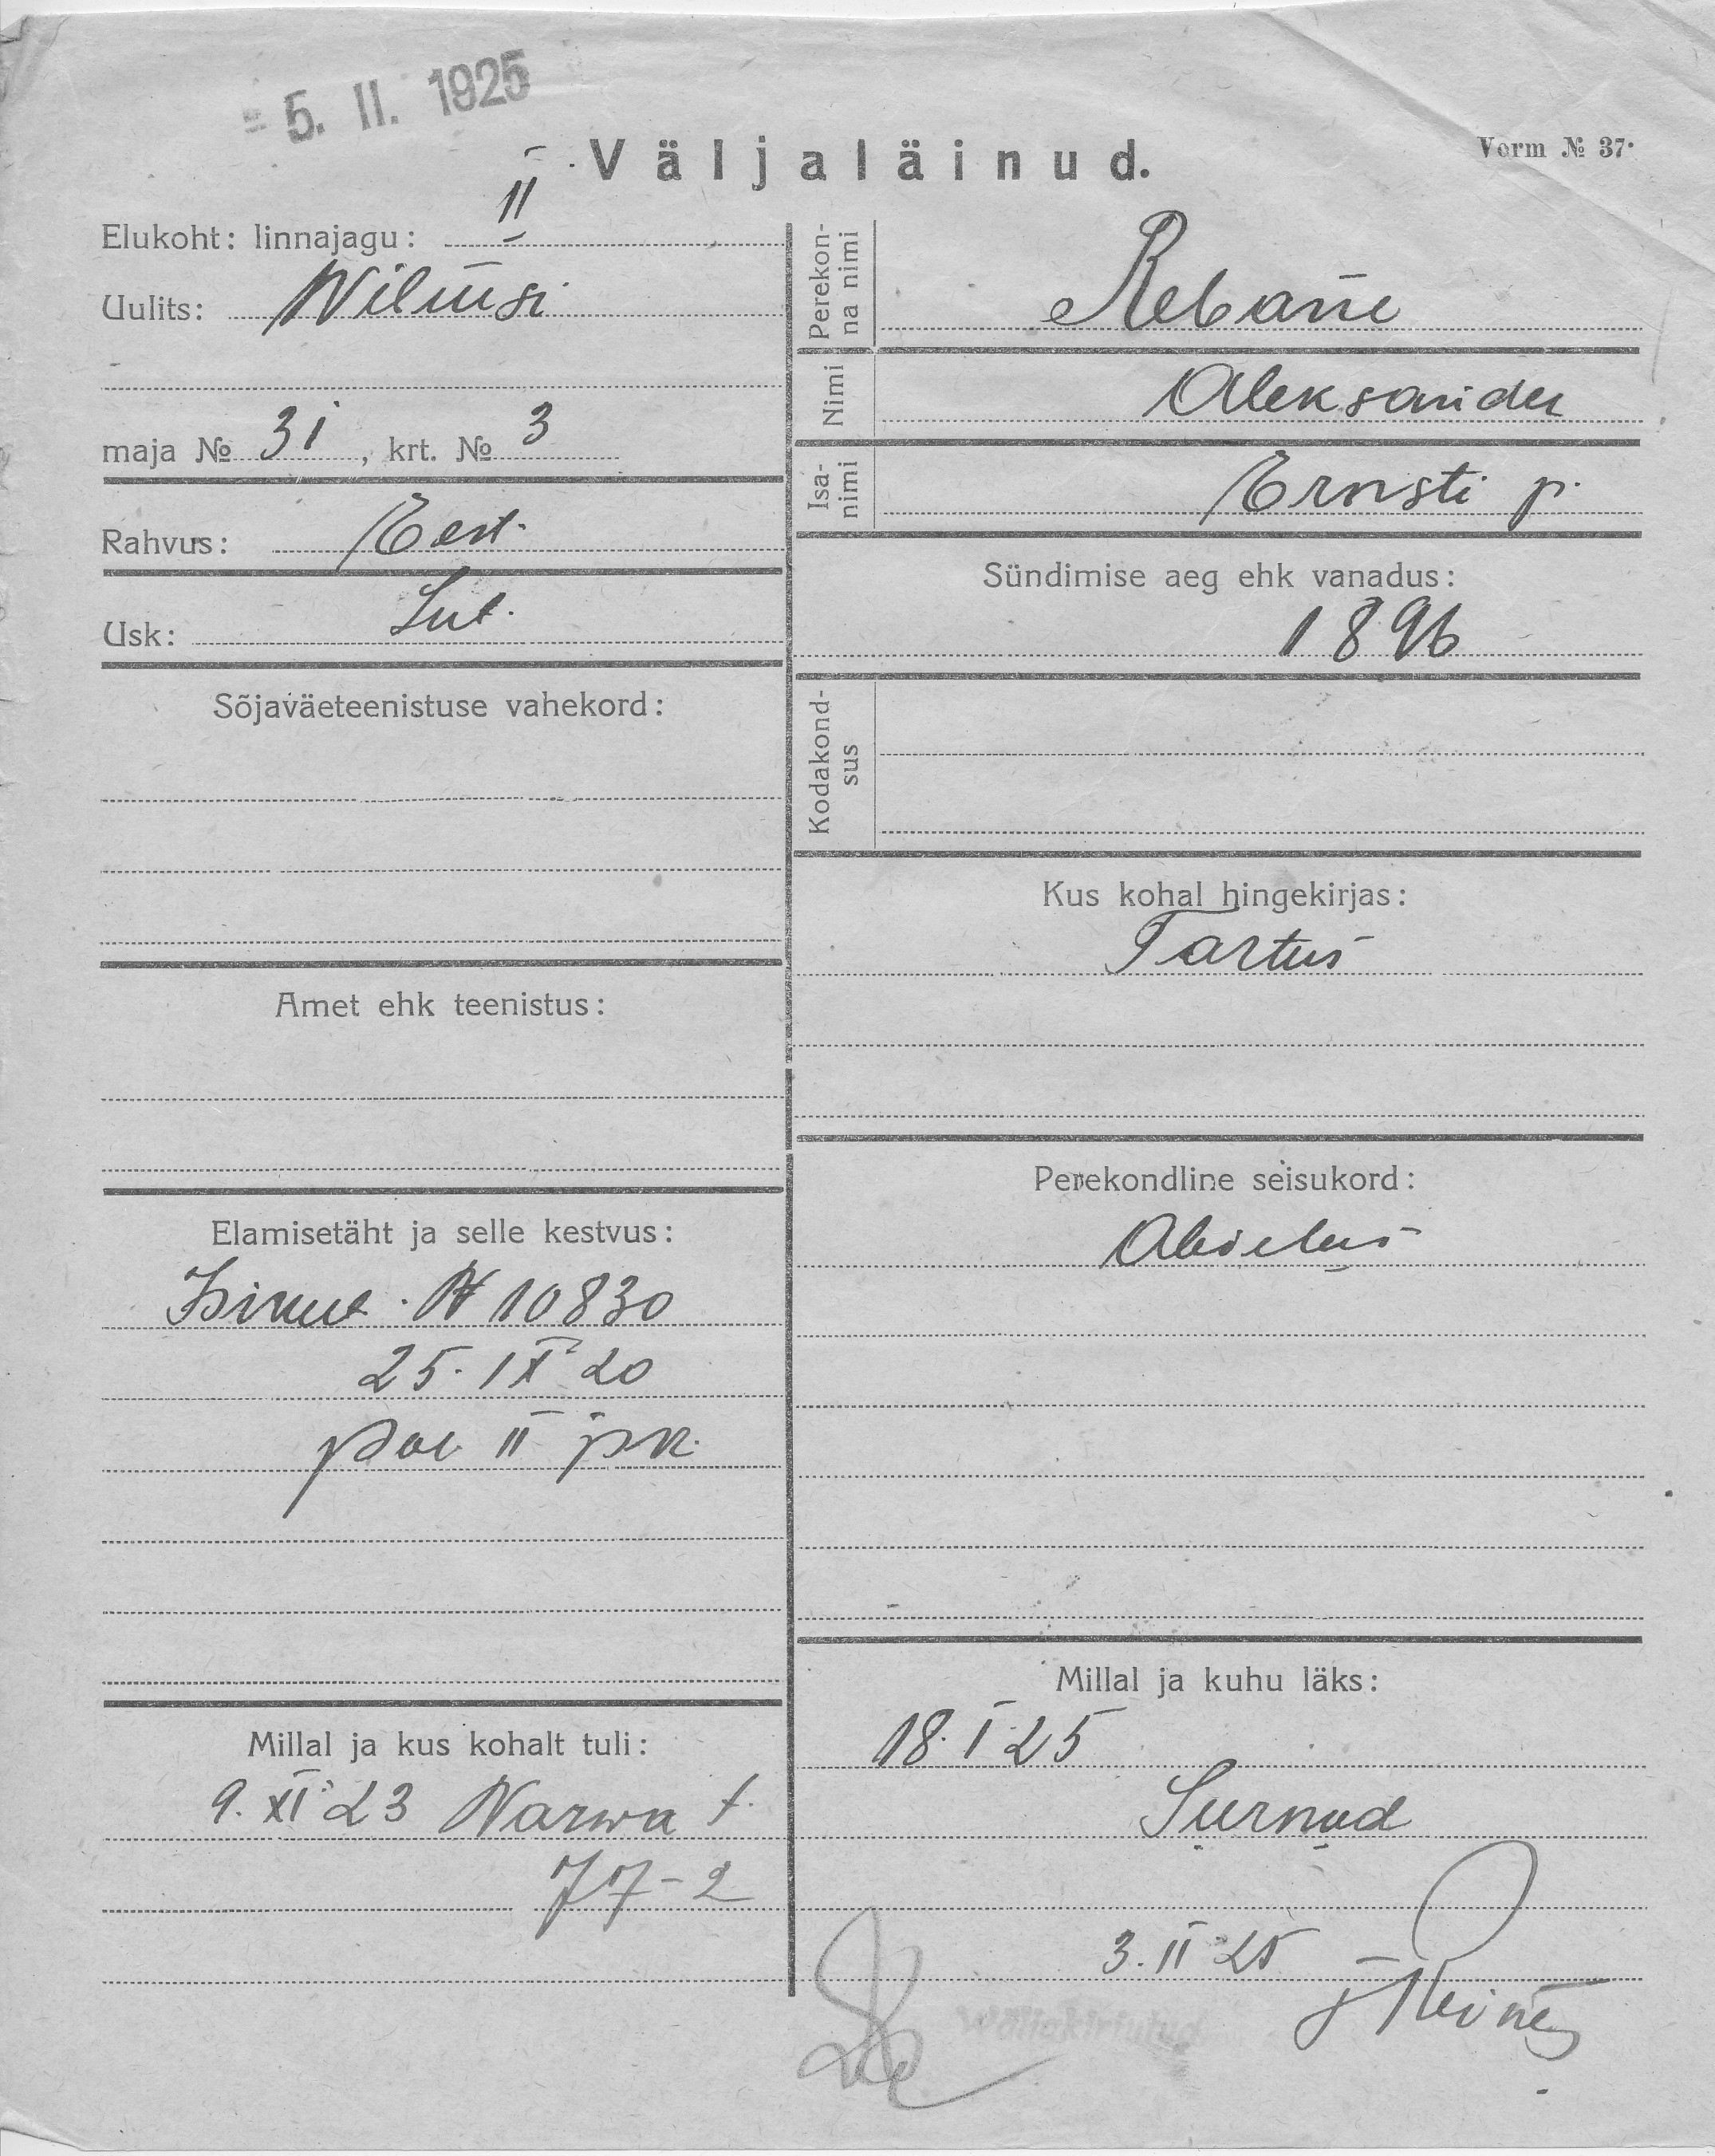 5. II. 1925
Väljaläinud.
Vorm № 37.
Elukoht: linnajagu: II
Uulits: Wilmsi
maja № 31, krt. № 3
Rahvus: Eest.
Usk: Lut.
Sõjaväeteenistuse vahekord:
Amet ehk teenistus:
Elamisetäht ja selle kestvus:
Isikut. № 10830
25. IX 20
pol II jsk.
Millal ja kus kohalt tuli:
9. XI 23 Narwa t.
77-2
Perekon-
na nimi
Rebane
Nimi
Aleksander
Isa-
nimi
Ernsti p.
Sündimise aeg ehk vanadus:
1896
Kodakond-
sus
Kus kohal hingekirjas:
Tartus
Perekondline seisukord:
Abielus
Millal ja kuhu läks:
18. I 25
Surnud
3. II 25
Wäljakirjutud